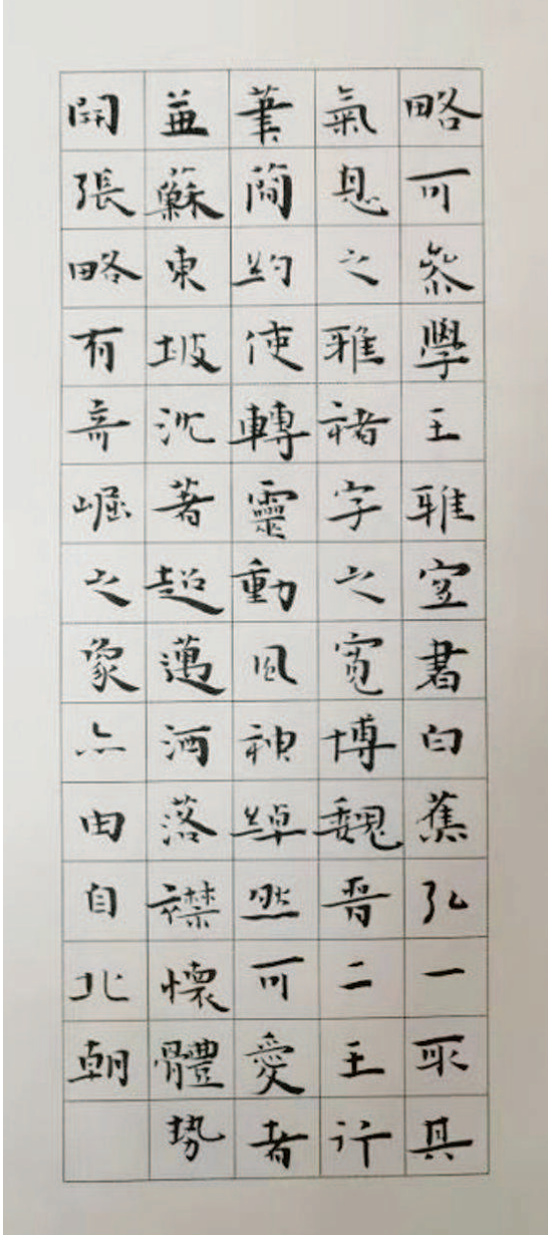 略可參學王雅宜書白蕉弘一取其
氣息之雅褚字之寬博魏晉二王行
筆簡約使轉靈動風神綽然可愛者
並蘇東坡沈著超邁洒落襟懷體勢
開張略有奇崛之象亦由自北朝